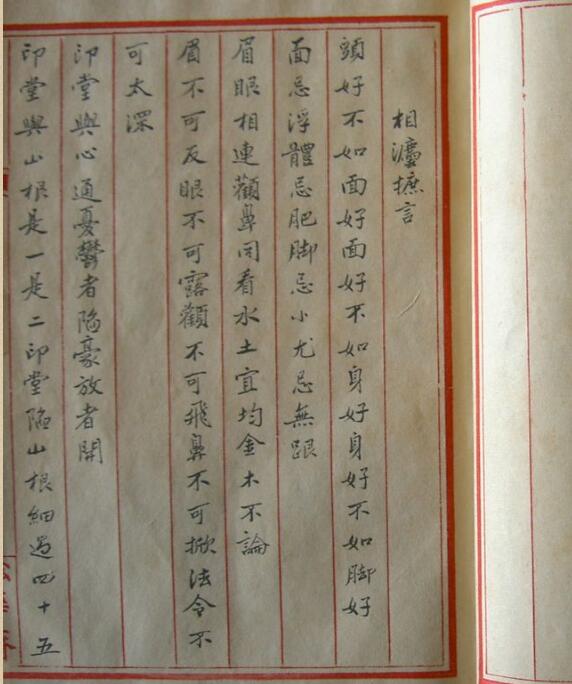 相瀍摭言
頭好不如面好面好不如身好身好不如脚好
面忌浮體忌肥脚忌小尤忌無跟
眉眼相連顴鼻同看水土宜均金木不論
眉不可反眼不可露顴不可飛鼻不可掀法令不
可太深
印堂與心通憂鬱者陷豪放者開
印堂與山根是一是二印堂陷山根細過四十五